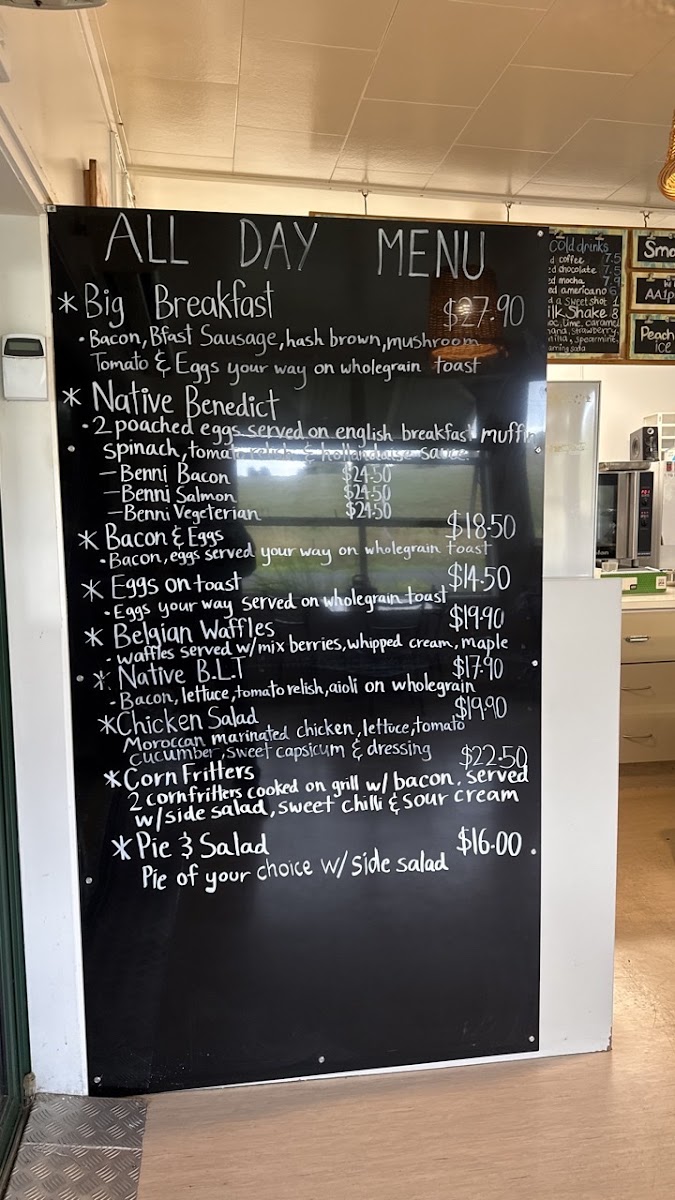 ALL DAY MENU
* Big Breakfast $27.90
• Bacon, Bfast Sausage, hash brown, mushroom
Tomato & Eggs your way on wholegrain toast
* Native Benedict
• 2 poached eggs served on english breakfast muffin
spinach, tomato relish & hollandaise sauce
- Benni Bacon $24.50
- Benni Salmon $24.50
- Benni Vegeterian $24.50
* Bacon & Eggs $18.50
• Bacon, eggs served your way on wholegrain toast
* Eggs on toast $14.50
• Eggs your way served on wholegrain toast
* Belgian Waffles $19.90
- waffles served w/ mix berries, whipped cream, maple
* Native B.L.T $17.90
- Bacon, lettuce, tomato relish, aioli on wholegrain
* Chicken Salad $19.90
Moroccan marinated chicken, lettuce, tomato
cucumber, sweet capsicum & dressing
* Corn Fritters $22.50
2 cornfritters cooked on grill w/ bacon. served
w/ side salad, sweet chilli & sour cream
* Pie & Salad $16.00.
Pie of your choice w/ side salad
Cold drinks
coffee 7.5
chocolate 7.5
mocha 7.9
americano 6
a sweet shot 1
ilk Shake 8
lime, caramel
strawberry,
spearmint,
soda
Smo
AA1p
Peach
ICE